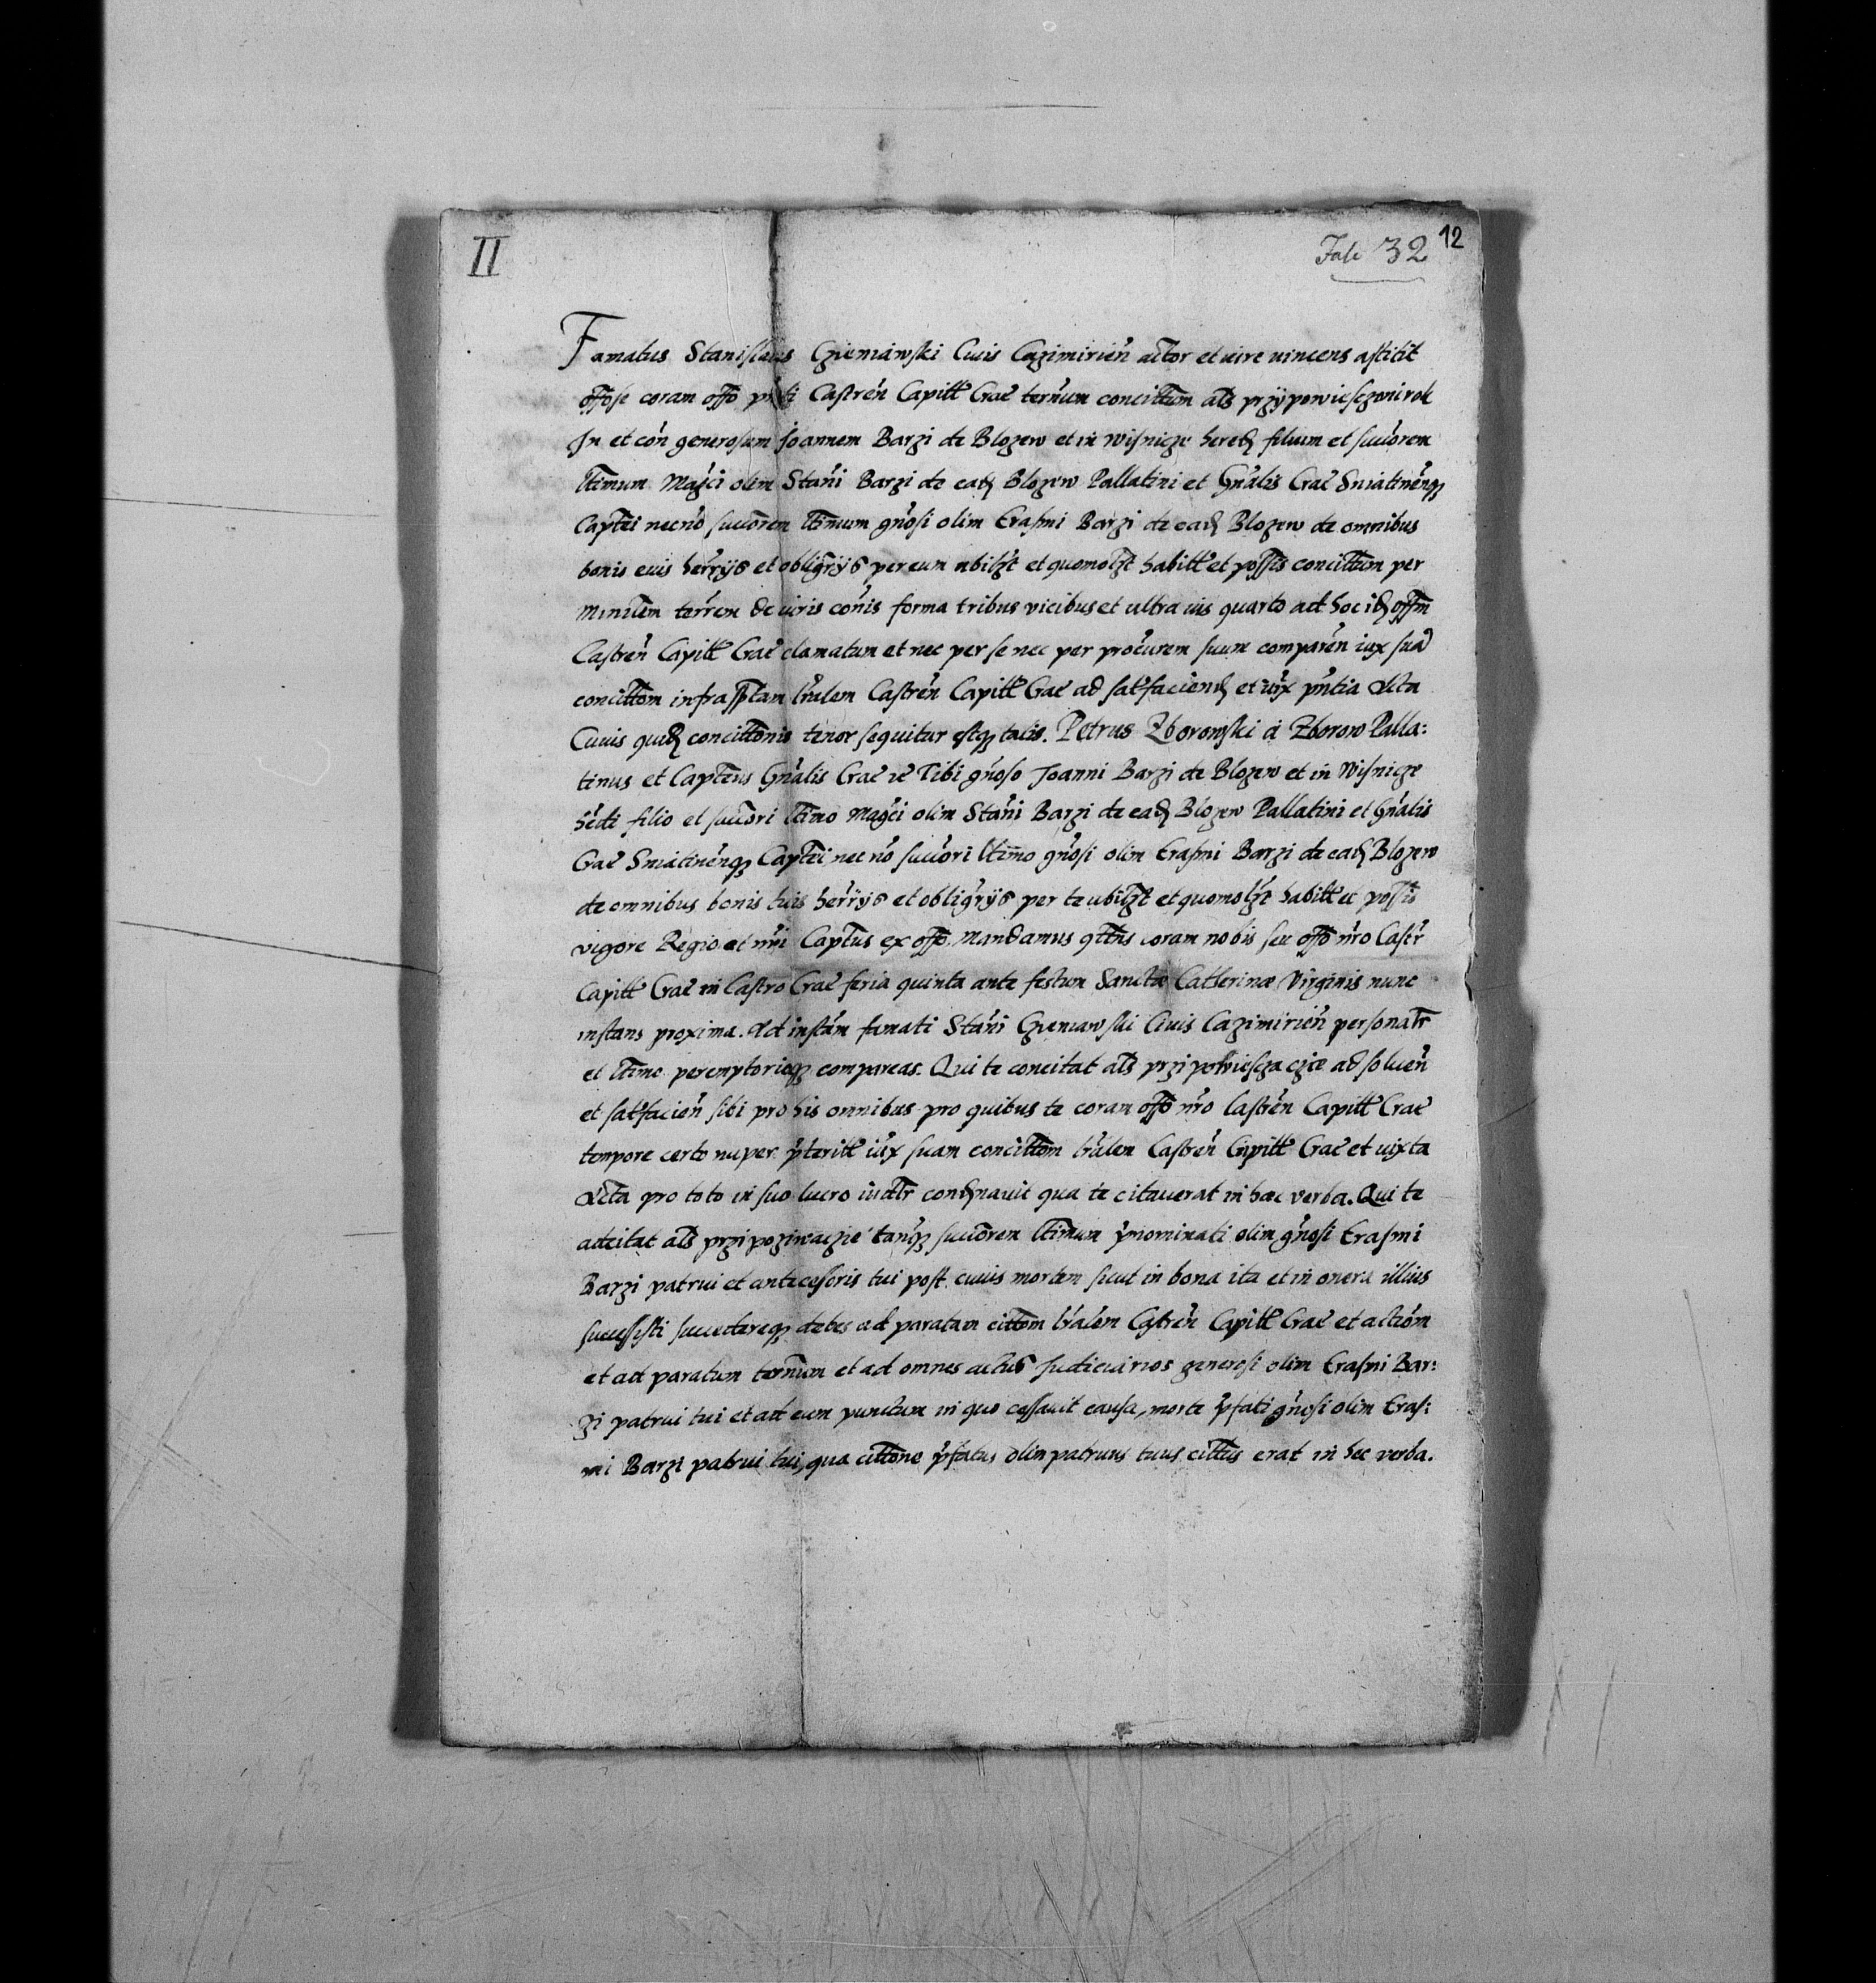 II
Fasc 32 12
Famatus Stanislaus Gzieniawski Civis Cazimirień actor et iure vincens astitit
offose coram offo Castreń Capitł Crac terńum concittum als przÿpowiesczoni rok
In et coń generosum Joannem Barzi de Blozew et in Wisnicze hered filium et sucćorem
ltimum Magći olim Stańi Barzi de ead Blozew Pallatini et Gńalis Crac Sniatineńq
Captei necnō succōrem ltimum gńosi olim Erasmi Barzi de ead Blozew de omnibus
bonis euis herŕÿs et obligŕÿs per eum ubilzt et quomolzt habitł et possis concittum per
Miniūem terŕem de iuris cońis forma tribus vicibus et ultra uis quarto ad hoc id offm
Castreń Capitł Crac clamatum et nec per se nec per procurem suum compareń iux suā
concittom infrassptam lŕalem Castreń Capitł Crac ad satfaciend et iux pńtia Acta
Cuius quid concittonis tenor sequitur estq talis. Petrus Zborowski à Zborow Palla:
tinus et Capteus Gńalis Crac ic Tibi gńoso Joanni Barzi de Blozew et in Wisnicze
hédi filio et succōri ltimo Magći olim Stańi Barzi de ead Blozew Pallatini et Gńalis
Crac Sniatineńq Captei necnō succōri ltimo gńosi olim Erasmi Barzi de ead Blozew
de omnibus bonis tuis herŕÿs et obligŕÿs per te ubilzt et quomolzt habitł et possis
vigore Regio et nŕi Captus ex offo. Mandamus qttns coram nobis seu offo nŕo Castŕ
Capitł Crac in Castro Crac feria quinta ante festum Sanctæ Catherinæ Virginis nunc
instans proxima. Ad instām famati Stańi Gzieniawski Civis Cazimirień personalr
et ltime peremptorieq compareas. Qui te concitat als przipowiescza czie ad solueń
et satfacień sibi pro his omnibus pro quibus te coram offo nŕo Castreń Capitł Crac
tempore certo nuper pteritł iux suam concittom lŕalem Castreń Capitł Crac et iuxta
Acta pro toto in suo lucro iudlr condnavit qua te citaverat in hæc verba. Qui te
adcitat als przipoziwaczie tanq succōrem ltimum pnominati olim gńosi Erasmi
Barzi patrui et antecessoris tui post cuius mortem sicut in bona ita et in onera illius
successisti succedereq debes ad paratam cittom lŕalem Castreń Capitł Crac et actiōm
et ad paratum terńum et ad omnes actus Judiciarios generosi olim Erasmi Bar:
zi patrui tui et ad eum punctum in quo cessavit causa, morte pfati gńosi olim Eras:
mi Barzi patrui tui, qua cittone pfatus olim patruus tuus cittus erat in hec verba.